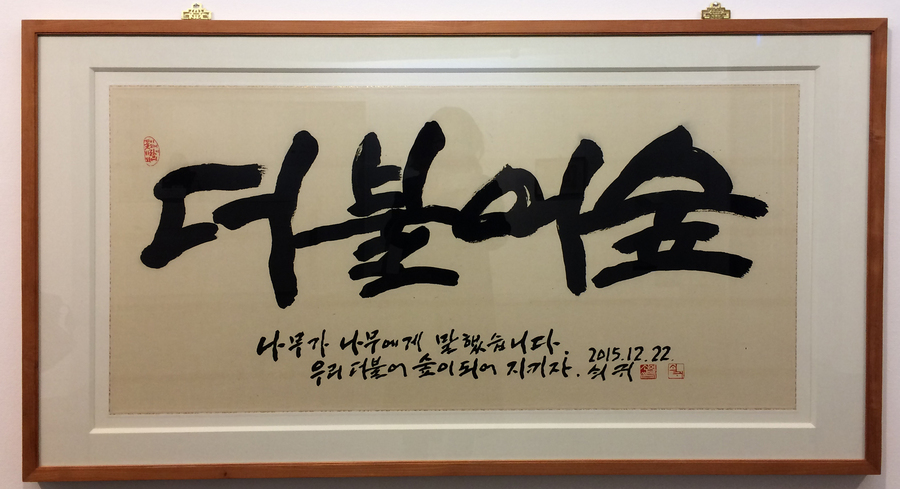 더불어숲
나무가 나무에게 말했습니다.
우리 더불어 숲이 되어 지키자.
2015.12.22.
쇠귀